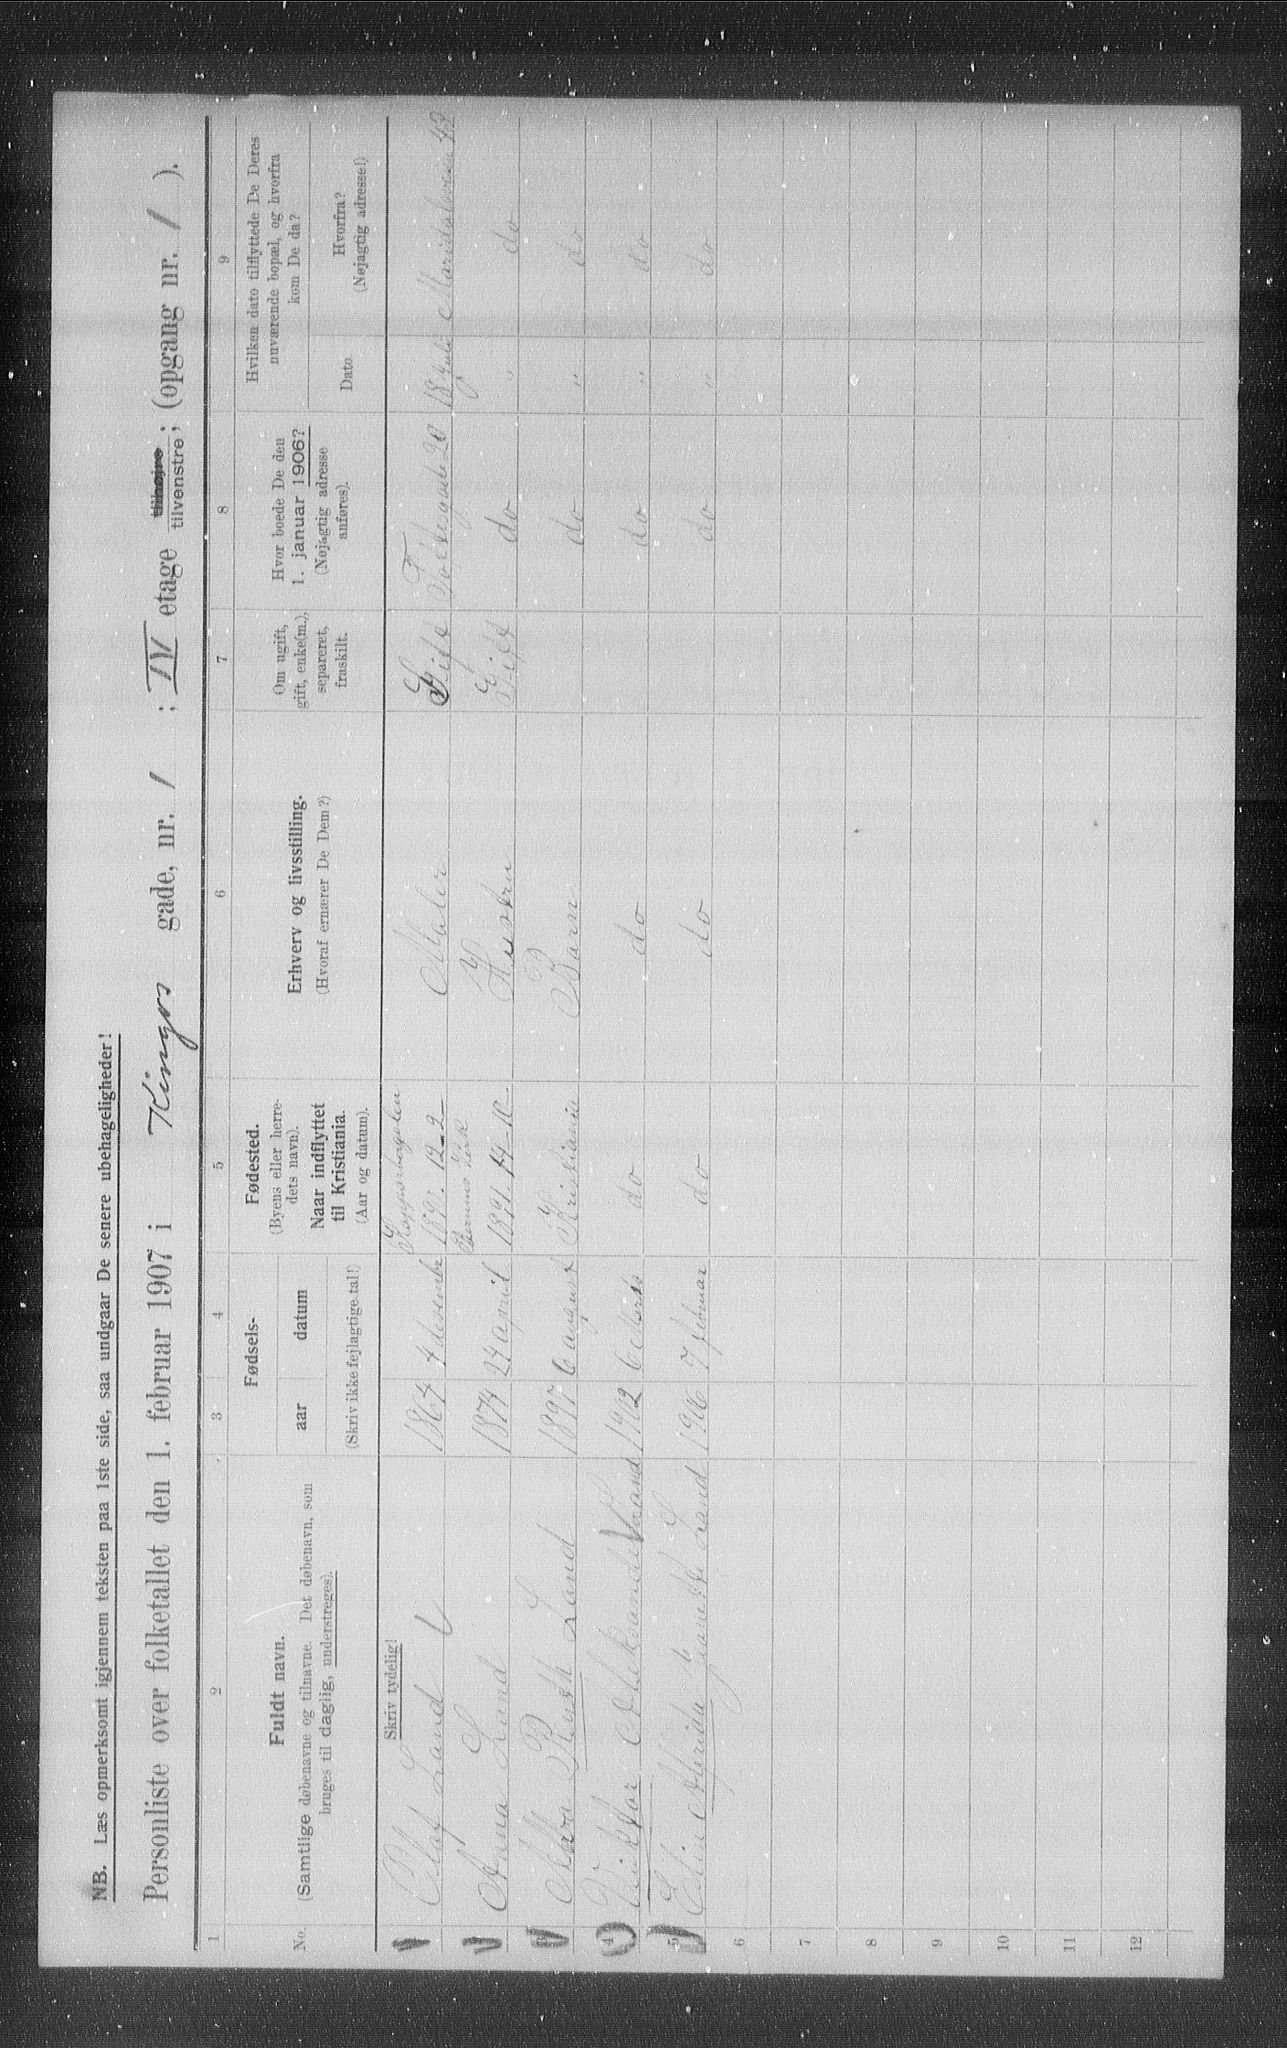 NB. Læs opmerksomt igjennem teksten paa 1ste side, saa undgaar De senere ubehageligheder!
Personliste over folketallet den 1. februar 1907 i Kingos gade, nr. 1 ; IV etage tilhøjre tilvenstre; (opgang nr. 1 ).
1 2 3 4 5 6 7 8 9
No.
Fuldt navn.
(Samtlige døbenavne og tilnavne. Det døbenavn, som
bruges til daglig, understreges).
Fødsels-
aar datum
(Skriv ikke fejlagtige tal!)
Fødested.
(Byens eller herre-
dets navn).
Naar indflyttet
til Kristiania.
(Aar og datum).
Erhverv og livsstilling.
(Hvoraf ernærer De Dem?)
Om ugift,
gift, enke(m.),
separeret,
fraskilt.
Hvor boede De den
1. januar 1906?
(Nøjagtig adresse
anføres).
Hvilken dato tilflyttede De Deres
nuværende bopæl, og hvorfra
kom De da?
Dato.
Hvorfra?
(Nøjagtig adresse!)
Skriv tydelig!
Olaf Sand 1864 4 Maler Gift Toftesgade 20 18 Juli Maridalsveien 43
Anna Sand 1874 24 april 1891 14-10- Hustru Gift do " do
3 Ruth Sand 1897 6 august Kristiania Barn do " do
4 Viktor Aleksander Sand 1902 6 do do do " do
5 Elin Afrida Jeanette Sand 1906 7 februar do do do " do
6
7
8
9
10
11
12